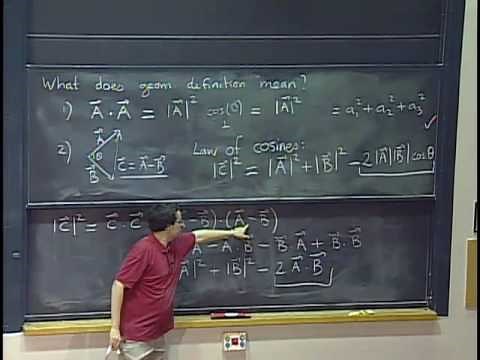 What does geom definition "mean"?
1) A⃗ · A⃗ = |A⃗|² cos(0) = |A⃗|² = a₁² + a₂² + a₃² ✓
1
2) A⃗ A θ B⃗ C⃗ = A⃗ - B⃗ Law of cosines:
|C⃗|² = |A⃗|² + |B⃗|² - 2|A⃗||B⃗|cosθ
|C⃗|² = C⃗ · C⃗ = - B⃗) · (A⃗ - B⃗)
A⃗ - A⃗ · B⃗ - B⃗ · A⃗ + B⃗ · B⃗
A⃗|² + |B⃗|² - 2 A⃗ · B⃗